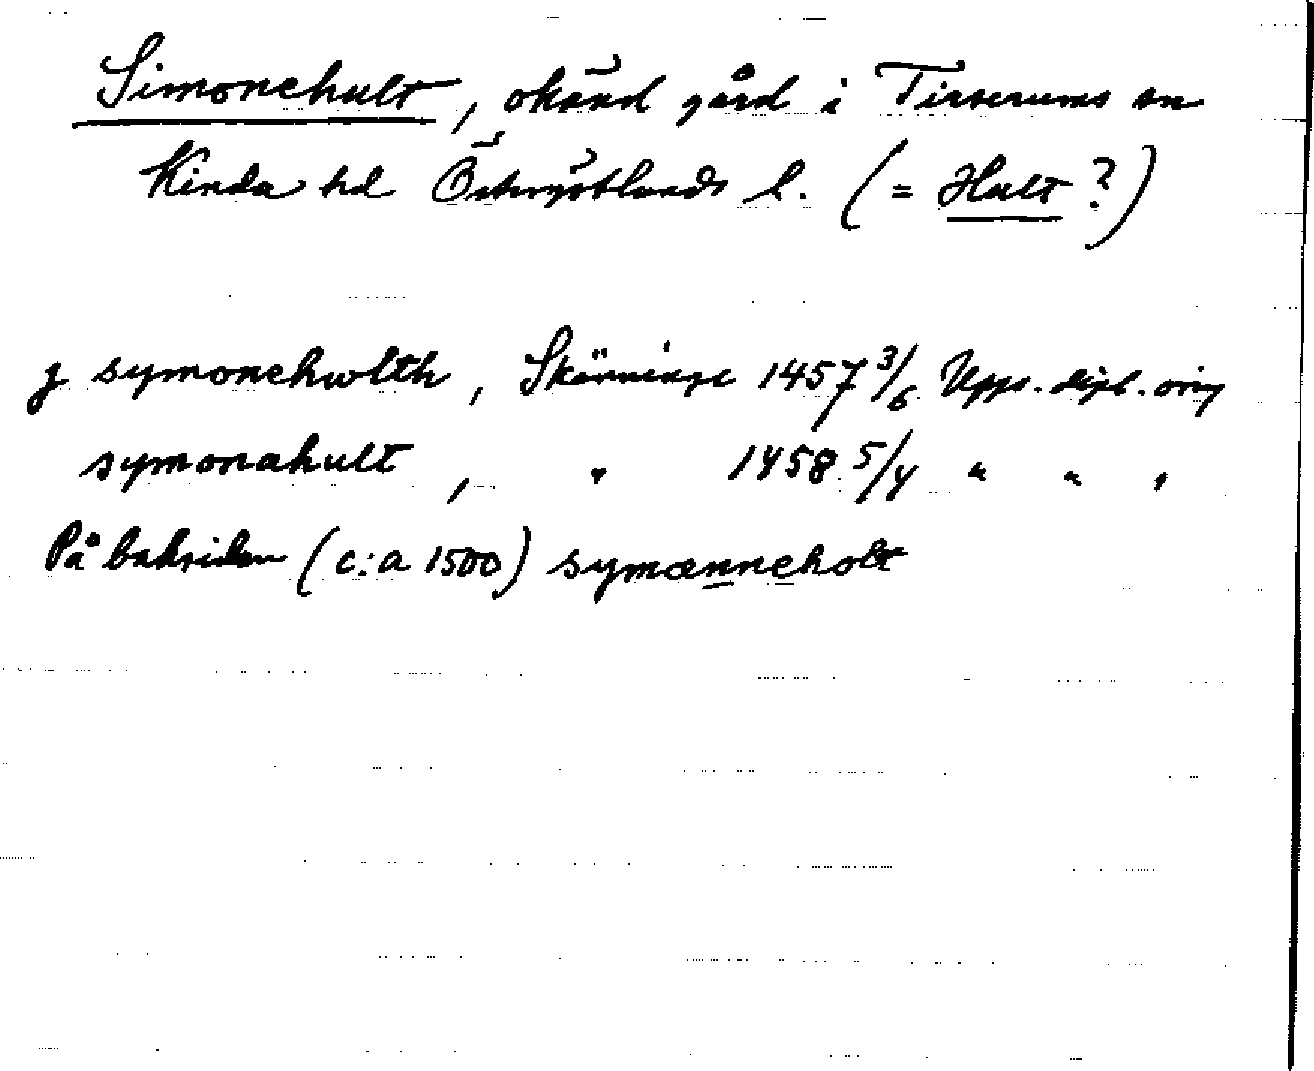 Simonehult, okänd gård i Tirserums sn
Kinda hd Östergötlands l. (= Hult?)
j symonehwlth, Skänninge 1457 3/6 Upps. dipl. orig
symonahult, " 1458 5/4 " " ,
På baksidan (c:a 1500) symænneholt